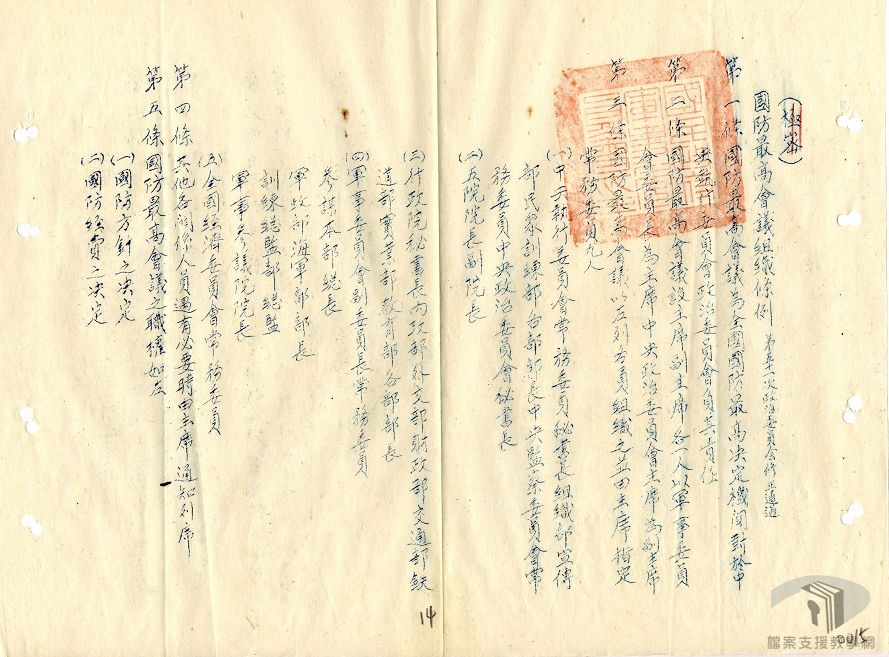 (極密)
國防最高會議組織條例 第五十一次政治委員會修正通過
第一條 國防最高會議為全國國防最高決定機關對於中
央執行委員會政治委員會負其責任
第二條 國防最高會議設主席副主席各一人以軍事委員
會委員長為主席中央政治委員會主席為副主席
第三條 國防最高會議以左列各員組織之並由主席指定
常務委員九人
(一)中央執行委員會常務委員秘書長組織部宣傳
部民眾訓練部各部部長中央監察委員會常
務委員中央政治委員會秘書長
(二)五院院長副院長
(三)行政院秘書長內政部外交部財政部交通部鐵
道部實業部教育部各部部長
(四)軍事委員會副委員長常務委員
參謀本部總長
軍政部海軍部部長
訓練總監部總監
軍事參議院院長
(五)全國經濟委員會常務委員
第四條 其他各關係人員遇有必要時由主席通知列席
第五條 國防最高會議之職權如左
(一)國防方針之決定
(二)國防經費之決定
14
0015
檔案支援教學網